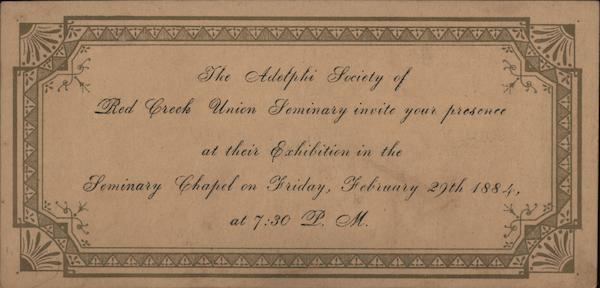 The Adelphi Society of
Red Creek Union Seminary invite your presence
at their Exhibition in the
Seminary Chapel on Friday, February 29th 1884,
at 7:30 P. M.